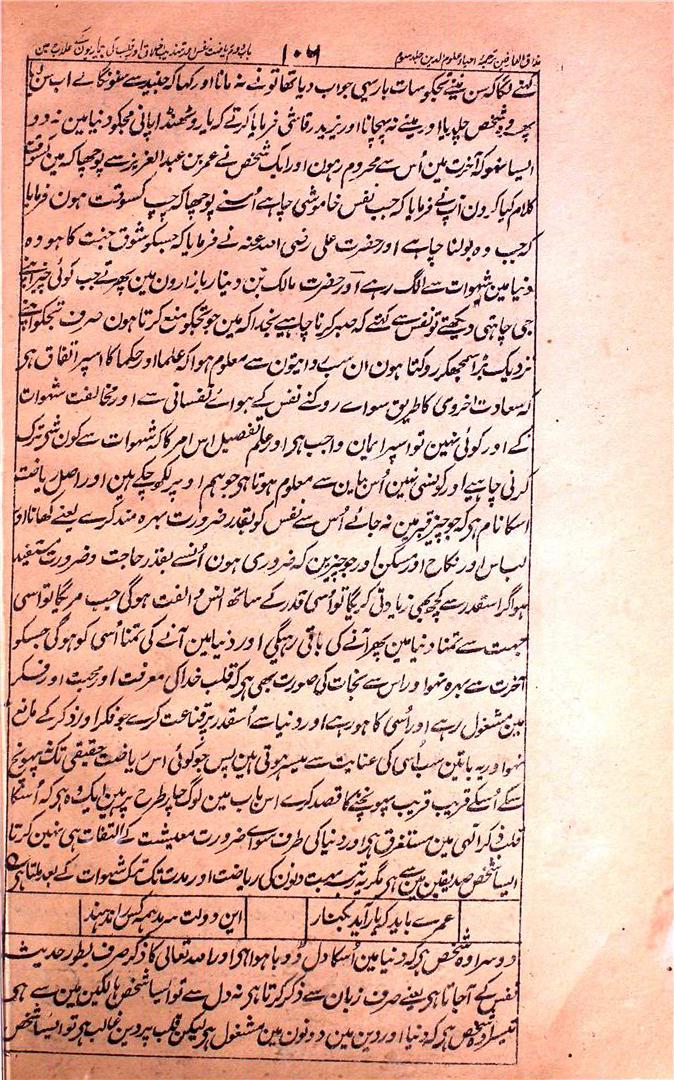 مذاق العارفین ترجمہ احیاء علوم الدین جلد سوم ۱۰۶ باب دوم ریاضت نفس اور تہذیب اخلاق اور قلب کی بیماریون کے علاج مین
کہنے لگا کہ سن مینے تجکو سات بار یہی جواب دیا تھا تو نے نہ مانا اور کہا کہ جنید سے سنونگا لے اب سن لیا
پھر وہ شخص چلدیا اور مینے نہ پہچانا اور یزید رقاشی فرمایا کرتے کہ یارو ٹھنڈا پانی مجکو دنیا مین نہ دو
ایسا نہو کہ آخرت مین اُس سے محروم رہون اور ایک شخص نے عمر بن عبدالعزیز سے پوچھا کہ مین کسوقت
کلام کیا کرون آپنے فرمایا کہ جب نفس خاموشی چاہے اُسنے پوچھا کہ چپ کسوقت ہون فرمایا
کہ جب وہ بولنا چاہے اور حضرت علی رضی اللہ عنہ نے فرمایا کہ جسکو شوق جنت کا ہو وہ
دنیا مین شہوات سے الگ رہے اور حضرت مالک بن دینار بازارون مین پھرتے جب کوئی چیز اپنے
جی چاہتی دیکھتے تو نفس سے کہتے کہ صبر کرنا چاہیے بخدا کہ مین جو تجکو منع کرتا ہون صرف تجکو اپنے
نزدیک بڑا سمجھکر روکتا ہون ان سب روایتون سے معلوم ہوا کہ علما اور حکما کا اسپر اتفاق ہی
کہ سعادت اخروی کا طریق سواے روکنے نفس کے ہوائے نفسانی سے اور مخالفت شہوات
کے اور کوئی نہین تو اسپر ایمان واجب ہی اور علم تفصیل اس امر کا کہ شہوات سے کون شی ترک
کرنی چاہیے اور کونسی نہین اُس بیان سے معلوم ہوتا ہی جو ہم اوپر لکھ چکے ہین اور اصل ریاضت
اسکا نام ہی کہ جو چیز قبر مین نہ جائے اُس سے نفس کو بقدر ضرورت بہرہ مند کرے یعنے کھانا اور
لباس اور نکاح اور مسکن اور جو چیزین کہ ضروری ہون اُنسے بقدر حاجت و ضرورت مستفید
ہو اگر اسقدر سے کچھ بھی زیادتی کریگا تو اُسی قدر کے ساتھ انس و الفت ہوگی جب مریگا تو اسی
جہت سے تمنا دنیا مین پھر آنے کی باقی رہیگی اور دنیا مین آنے کی تمنا اُسی کو ہوگی جسکو
آخرت سے بہرہ نہو اور اس سے نجات کی صورت بھی ہی کہ قلب خدا کی معرفت اور محبت اور فکر
مین مشغول رہے اور اُسی کا ہو رہے اور دنیا سے اُسقدر پر قناعت کرے جو فکر اور ذکر کے مانع
نہو اور یہ باتین سب اُسی کی عنایت سے میسر ہوتی ہین پس جو کوئی اس ریاضت حقیقی تک نہ پہونچ
سکے اُسکے قریب قریب پہونچنے کا قصد کرے اس باب مین لوگ چار طرح پر ہین ایک وہ ہی کہ اُسکا
قلب ذکر الٰہی مین مستغرق ہی اور دنیا کی طرف سواے ضرورت معیشت کے التفات ہی نہین کرتا
ایسا شخص صدیقین مین سے ہی مگر یہ رتبہ بہت دنون کی ریاضت اور مدت تک ترک شہوات کے بعد ملتا ہی
عمرے باید کہ یار آید بکنار این دولت سرمد ہمہ کس را ندہند
دوسرا وہ شخص ہی کہ دنیا مین اُسکا دل ڈوبا ہوا ہی اور اللہ تعالی کا ذکر صرف بطور حدیث
نفس کے آجاتا ہی یعنے صرف زبان سے ذکر کرتا ہی نہ دل سے تو ایسا شخص ہالکین مین سے ہی
تیسرا وہ شخص ہی کہ دنیا اور دین مین دونون مین مشغول ہی لیکن قلب پر دین غالب ہی تو ایسا شخص